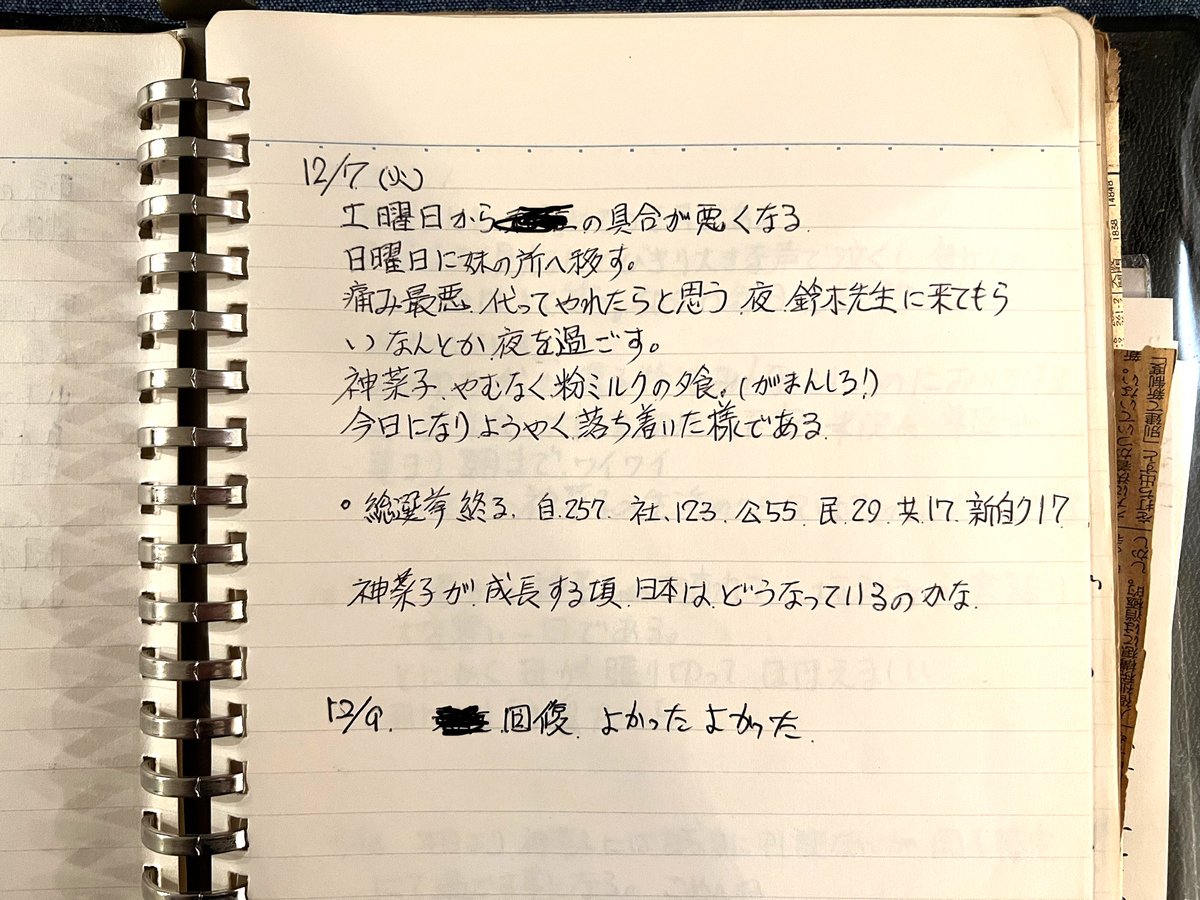 12/7(火)
土曜日から の具合が悪くなる.
日曜日に妹の所へ移す。
痛み最悪.代ってやれたらと思う.夜.鈴木先生に来てもら
いなんとか夜を過ごす。
神菜子.やむなく粉ミルクの夕食。(がまんしろ!)
今日になりようやく落ち着いた様である.
○総選挙終る.自.257.社.123.公55.民.29.共.17.新自ク17
神菜子が.成長する頃.日本は.どうなっているのかな.
12/9. .回復.よかったよかった.